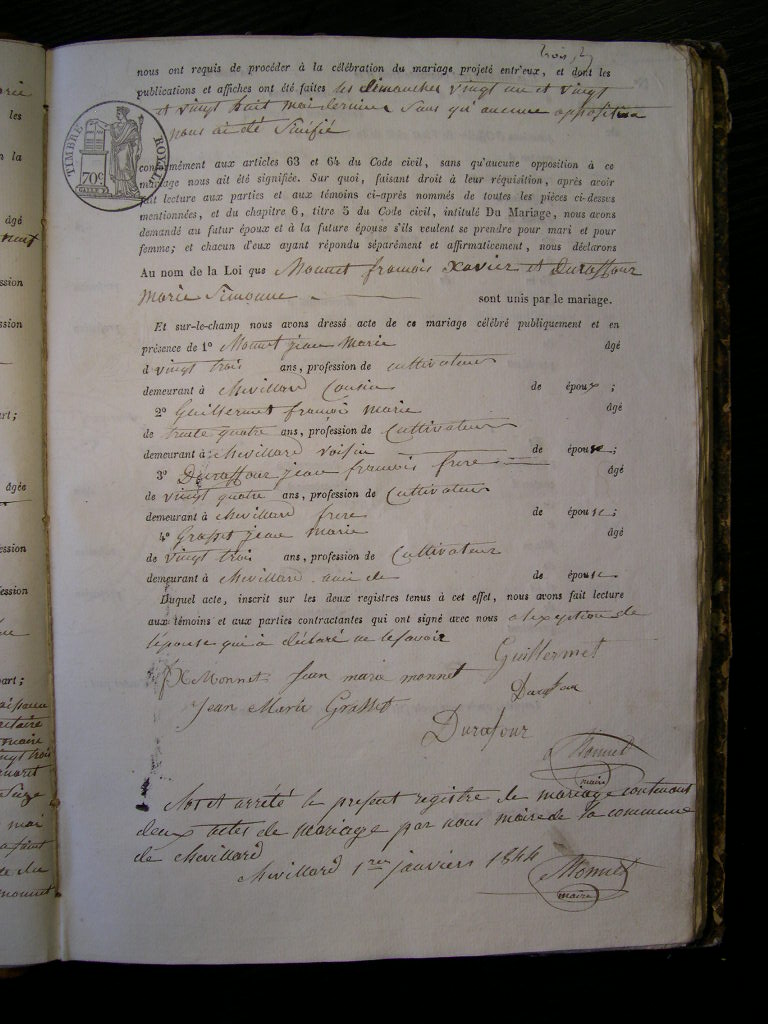 nous ont requis de procéder à la célébration du mariage projeté entr'eux, et dont les
publications et affiches ont été faites les dimanches vingt un et vingt
et vingt huit mai dernier sans qu'aucune opposition
nous ai été signifié
TIMBRE ROYAL
70c
conformément aux articles 63 et 64 du Code civil, sans qu'aucune opposition à ce
mariage nous ait été signifiée. Sur quoi, faisant droit à leur réquisition, après avoir
fait lecture aux parties et aux témoins ci-après nommés de toutes les pièces ci-dessus
mentionnées, et du chapitre 6, titre 5 du Code civil, intitulé Du Mariage, nous avons
demandé au futur époux et à la future épouse s'ils veulent se prendre pour mari et pour
femme; et chacun d'eux ayant répondu séparément et affirmativement, nous déclarons
Au nom de la Loi que Monnet françois Xavier et Duraffour
marie simonne sont unis par le mariage.
Et sur-le-champ nous avons dressé acte de ce mariage célébré publiquement et en
présence de 1º Monnet jean marie âgé
d vingt trois ans, profession de cultivateur
demeurant à chevillard cousin de époux ;
2º Guillermet françois marie âgé
de trente quatre ans, profession de Cultivateur
demeurant à chevillard voisin de épouse;
3º Duraffour jean françois frere âgé
de vingt quatre ans, profession de Cultivateur
demeurant à chevillard frere de épouse;
4º Grasset jean marie âgé
de vingt trois ans, profession de Cultivateur
demeurant à chevillard ami de de épouse
Duquel acte, inscrit sur les deux registres tenus à cet effet, nous avons fait lecture
aux témoins et aux parties contractantes qui ont signé avec nous a lexeption de
lépouse qui à déclaré ne le savoir
Guillermet
fX Monnet Jean marie monnet
Jean Marie Grasset
Durafour
Monnet
maire
Clos et arrêté le présent registre de mariage contenant
deux actes de mariage par nous maire de la commune
de chevillard
chevillard 1er janviers 1844
Monnet
maire